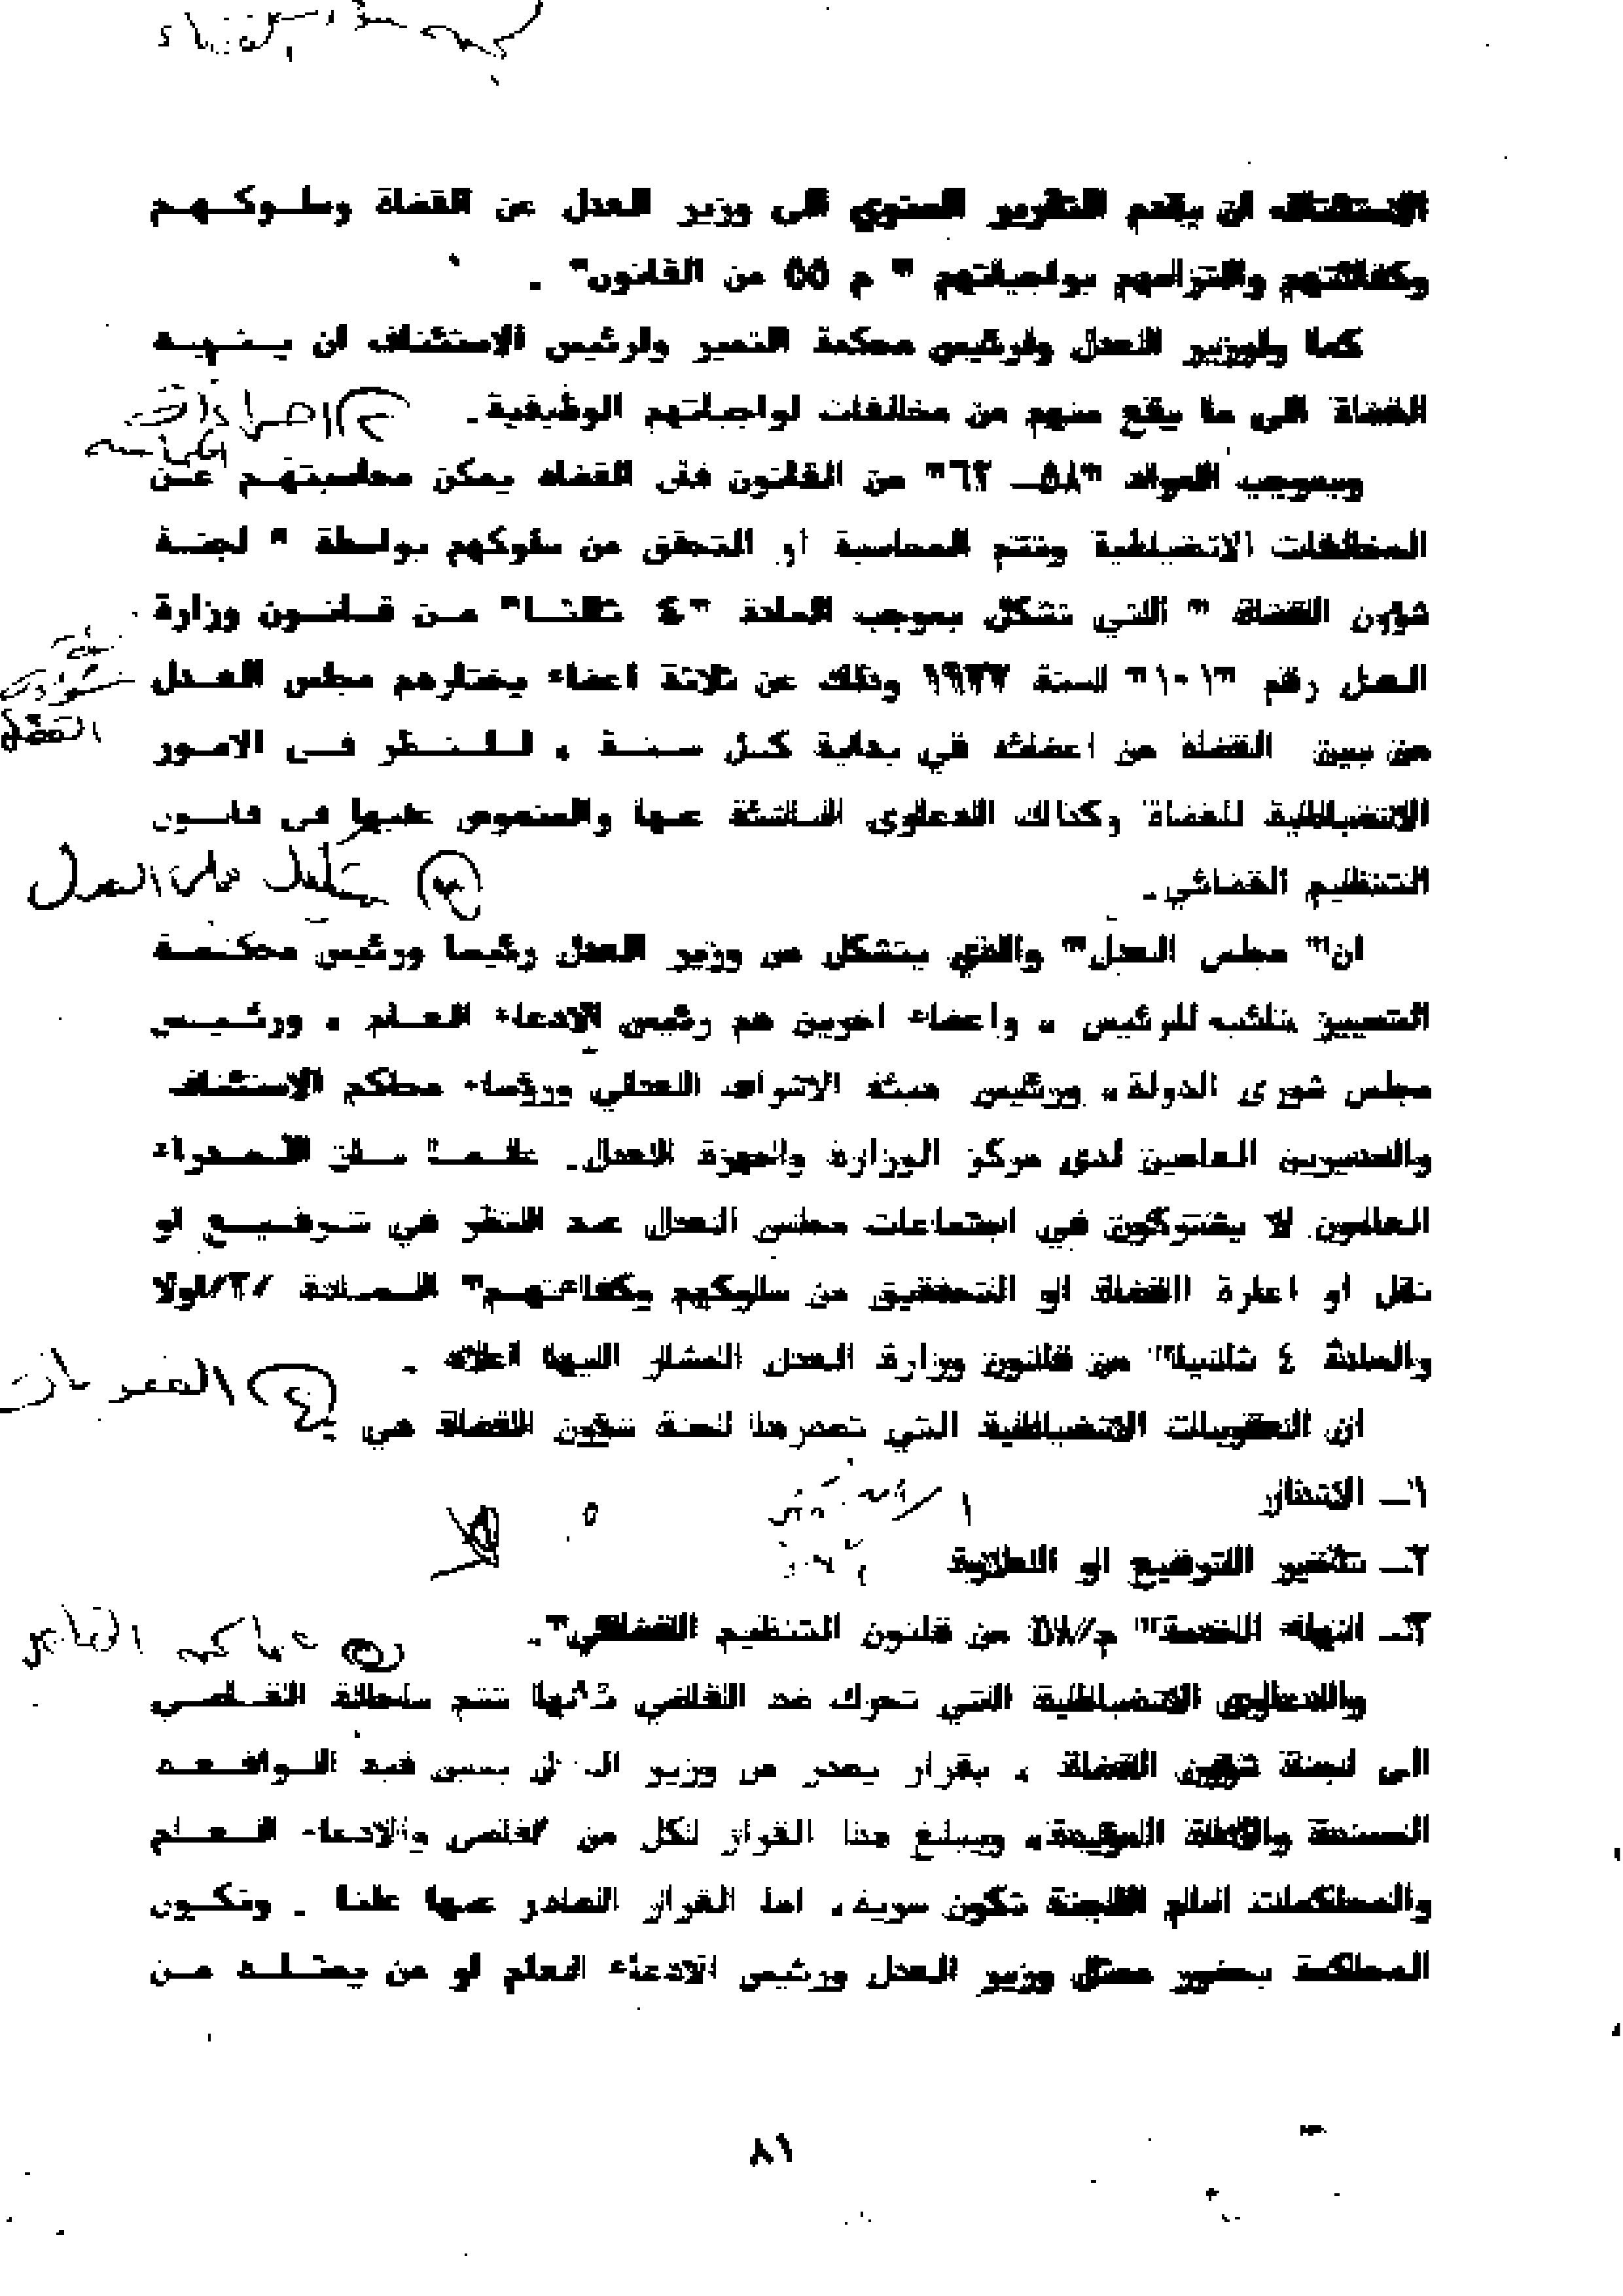 الاستئناف ان يقدم التقرير السنوي الى وزير العدل عن القضاة وسلوكهم
وكفائتهم والتزامهم بواجباتهم " م ٥٥ من القانون" .
كما ولوزير العدل ولرئيس محكمة التميز ولرئيس الاستئناف ان ينبه
القضاة الى ما يقع منهم من مخالفات لواجباتهم الوظيفية.
وبموجب المواد "٥٨ــ ٦٢" من القانون فان القضاه يمكن محاسبتهم عن
المخالفات الانضباطية وتتم المحاسبة او التحقق من سلوكهم بواسطة " لجنة
شؤون القضاة " التي تشكل بموجب المادة "٤ ثالثا" من قانون وزارة
العدل رقم "١٠١" لسنة ١٩٧٧ وذلك من ثلاثة اعضاء يختارهم مجلس العدل
من بين القضاة من اعضائه في بداية كل سنة ، للنظر في الامور
الانضباطية للقضاة وكذلك الدعاوى الناشئة عنها والمنصوص عليها في قانون
التنظيم القضائي.
تشكيل مجلس العدل
ان" مجلس العدل" والذي يتشكل من وزير العدل رئيسا ورئيس محكمة
التمييز نائب للرئيس ، واعضاء اخرين هم رئيس الادعاء العام ، ورئيس
مجلس شورى الدولة، ورئيس هيئة الاشراف العدلي ورؤساء محاكم الاستئناف
والمديرين العامين لدى مركز الوزارة واجهزة العدل. علما بان المدراء
العامون لا يشتركون في اجتماعات مجلس العدل عند النظر في ترفيع او
نقل او اعارة القضاة او التحقيق من سلوكهم وكفاءتهم" المادة /٣/اولا
والمادة ٤ ثانيا" من قانون وزارة العدل المشار اليها اعلاه .
٤ العقوبات
ان العقوبات الانضباطية التي تصدرها لجنة شؤون القضاة هي :ـ
١ــ الانذار
٢ــ تأخير الترفيع او العلاوة
٣ــ انهاء الخدمة" م/٥٨ من قانون التنظيم القضائي".
محاكمة القاضي
والدعاوى الانضباطية التي تحرك ضد القاضي فانها تتم باحالة القاضي
الى لجنة شؤون القضاة ، بقرار يصدر من وزير العدل يبين فيه الواقعة
المسندة والادلة المؤيدة، ويبلغ هذا القرار لكل من القاضي والادعاء العام
والمحاكمات امام اللجنة تكون سرية، اما القرار الصادر عنها علنا . وتكون
المحاكمة بحضور ممثل وزير العدل ورئيس الادعاء العام او من يمثله من
٨١